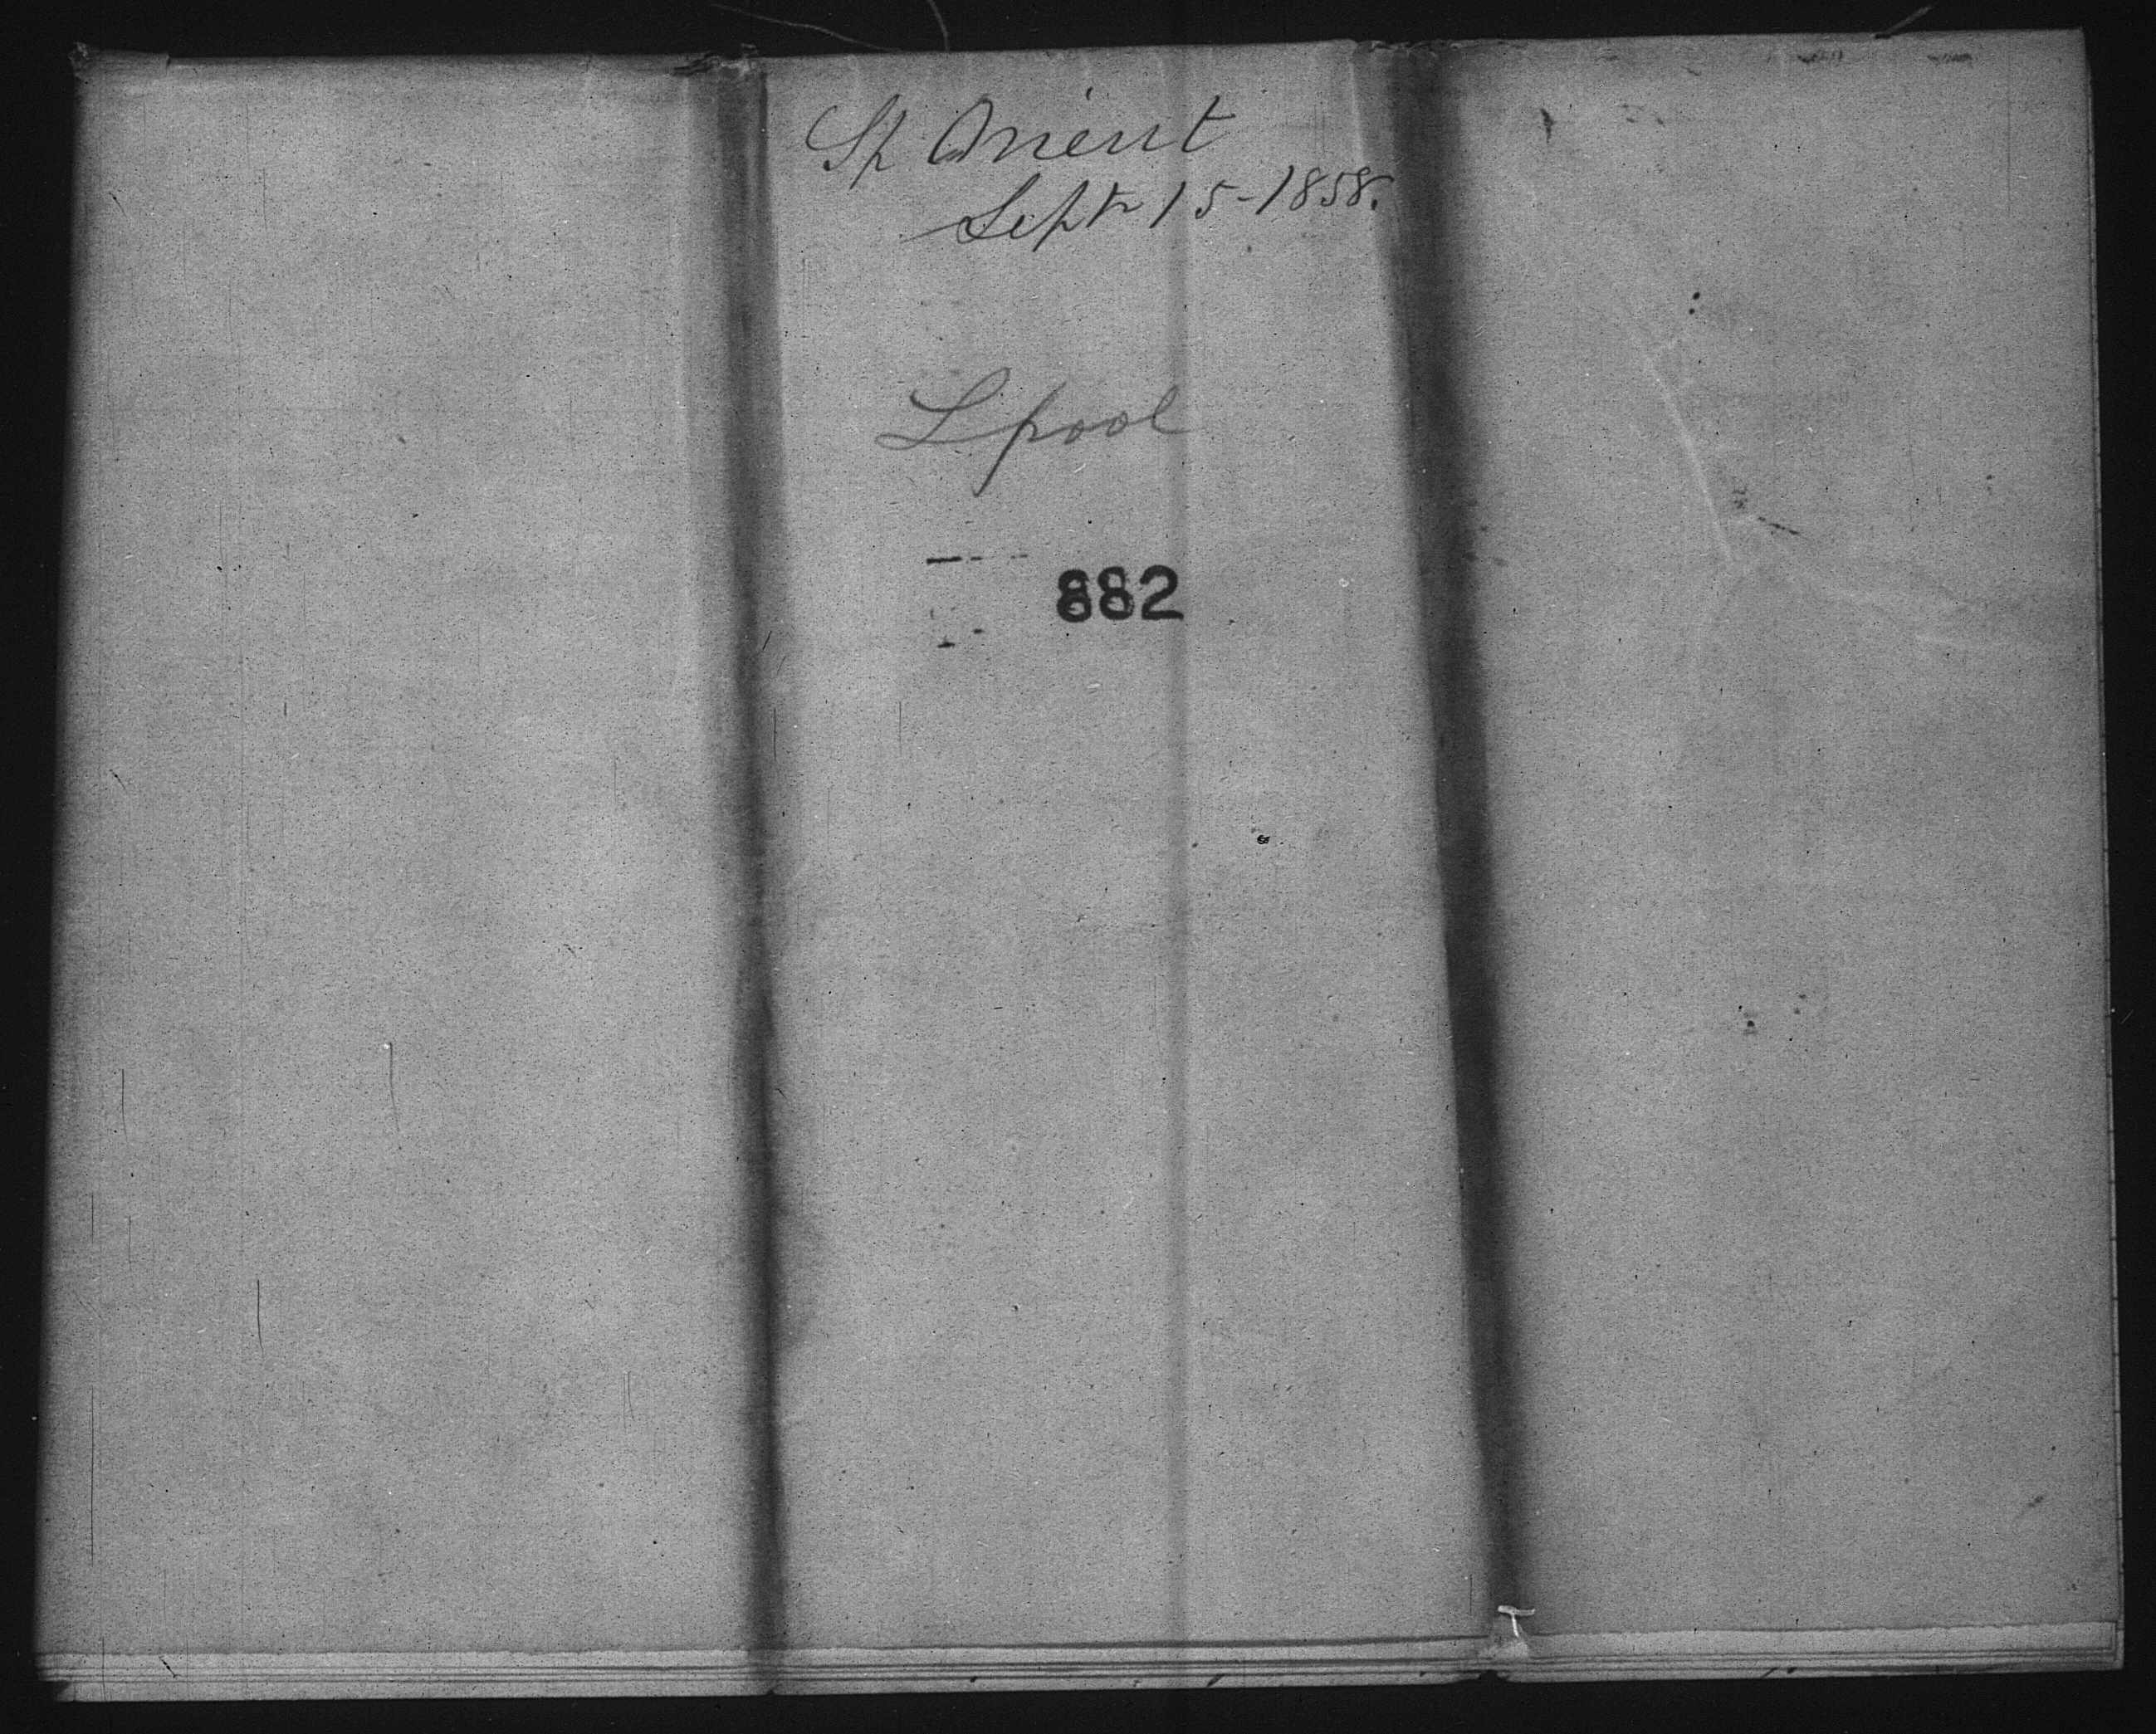 Sh Orient
Sept 15-1858.
Lpool
882